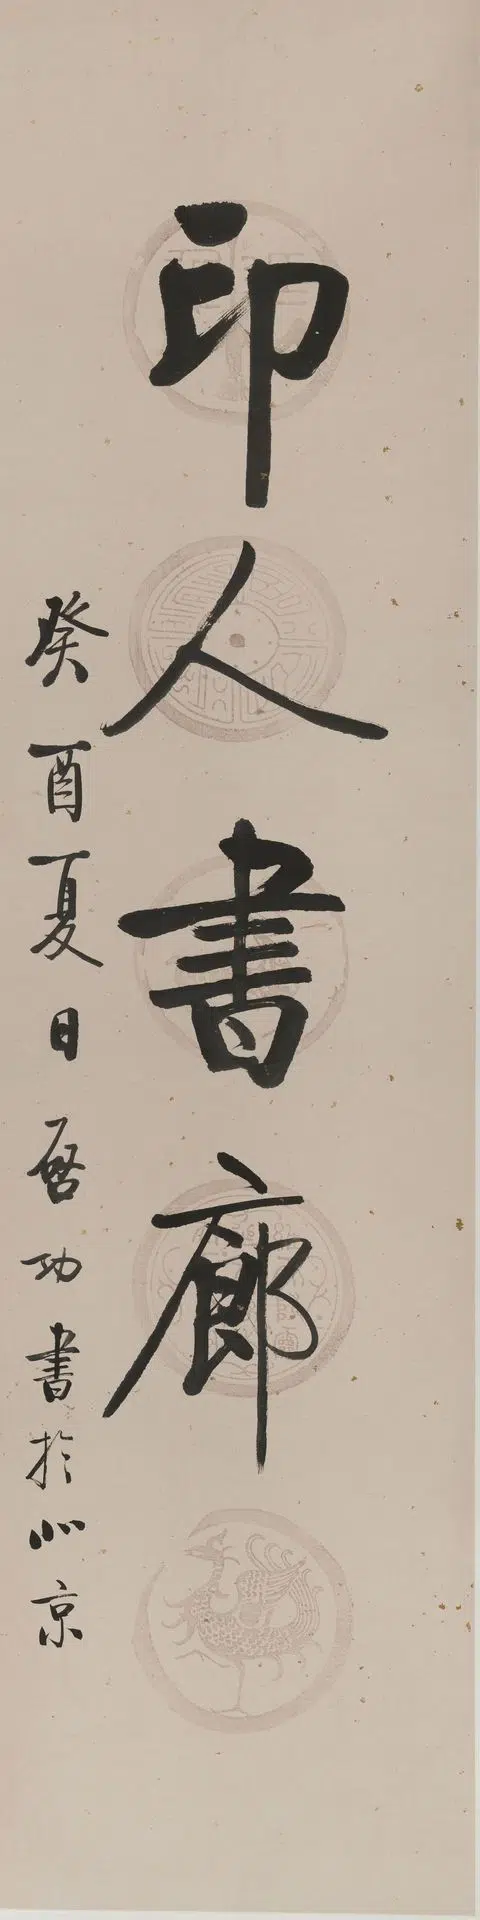 印人書廊
癸酉夏日啓功書於北京